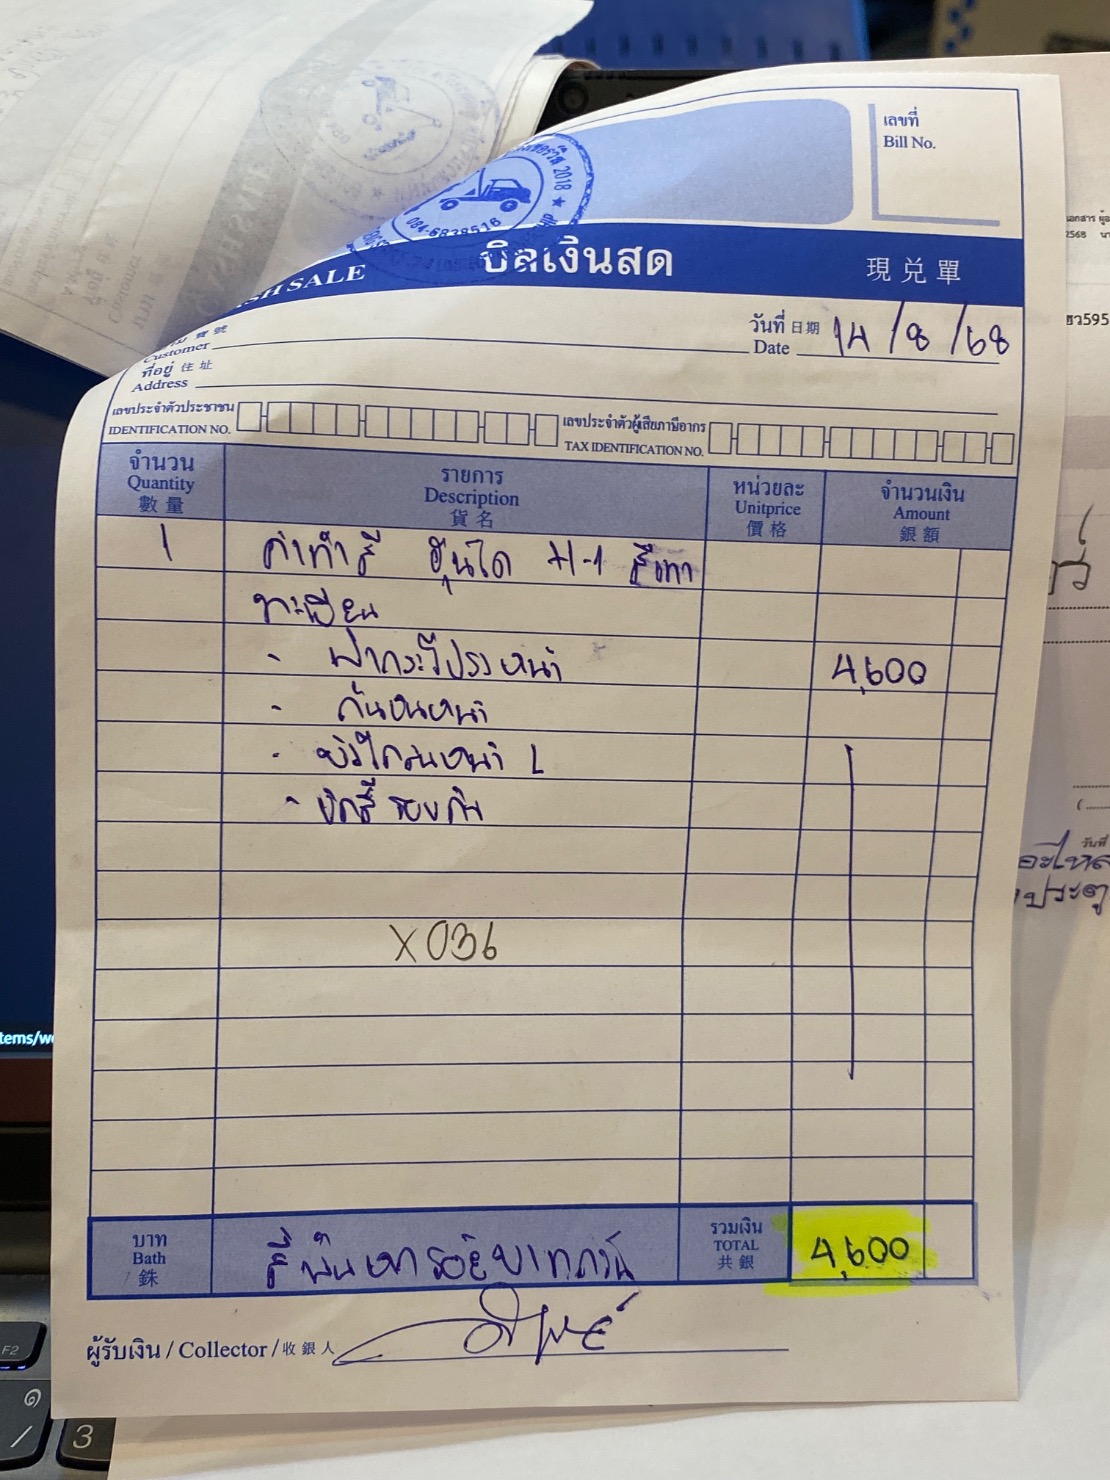 เลขที่
Bill No.
2018
084-6838516
บิลเงินสด
CASH SALE
現兑單
วันที่ 日期 14/8/68
Date
Customer
ที่อยู่ 住址
Address
เลขประจำตัวประชาชน
IDENTIFICATION NO.
เลขประจำตัวผู้เสียภาษีอากร
TAX IDENTIFICATION NO.
จำนวน รายการ หน่วยละ จำนวนเงิน
Quantity Description Unitprice Amount
數量 貨名 價格 銀額
1 ค่าทำสี ฮุนได H-1 สีเทา
ทะเบียน
- ฝากระโปรงหน้า 4,600
- กันชนหน้า
- บังโคลนหน้า L
- ขัดสี รอบคัน
X036
บาท
Bath
銖
สี่พันหกร้อยบาทถ้วน
รวมเงิน
TOTAL
共銀
4,600
ผู้รับเงิน / Collector / 收銀人
tems/w
F2
3
/
เอกสาร
2568
ชว595
วันที่
อะไหล
ประตู